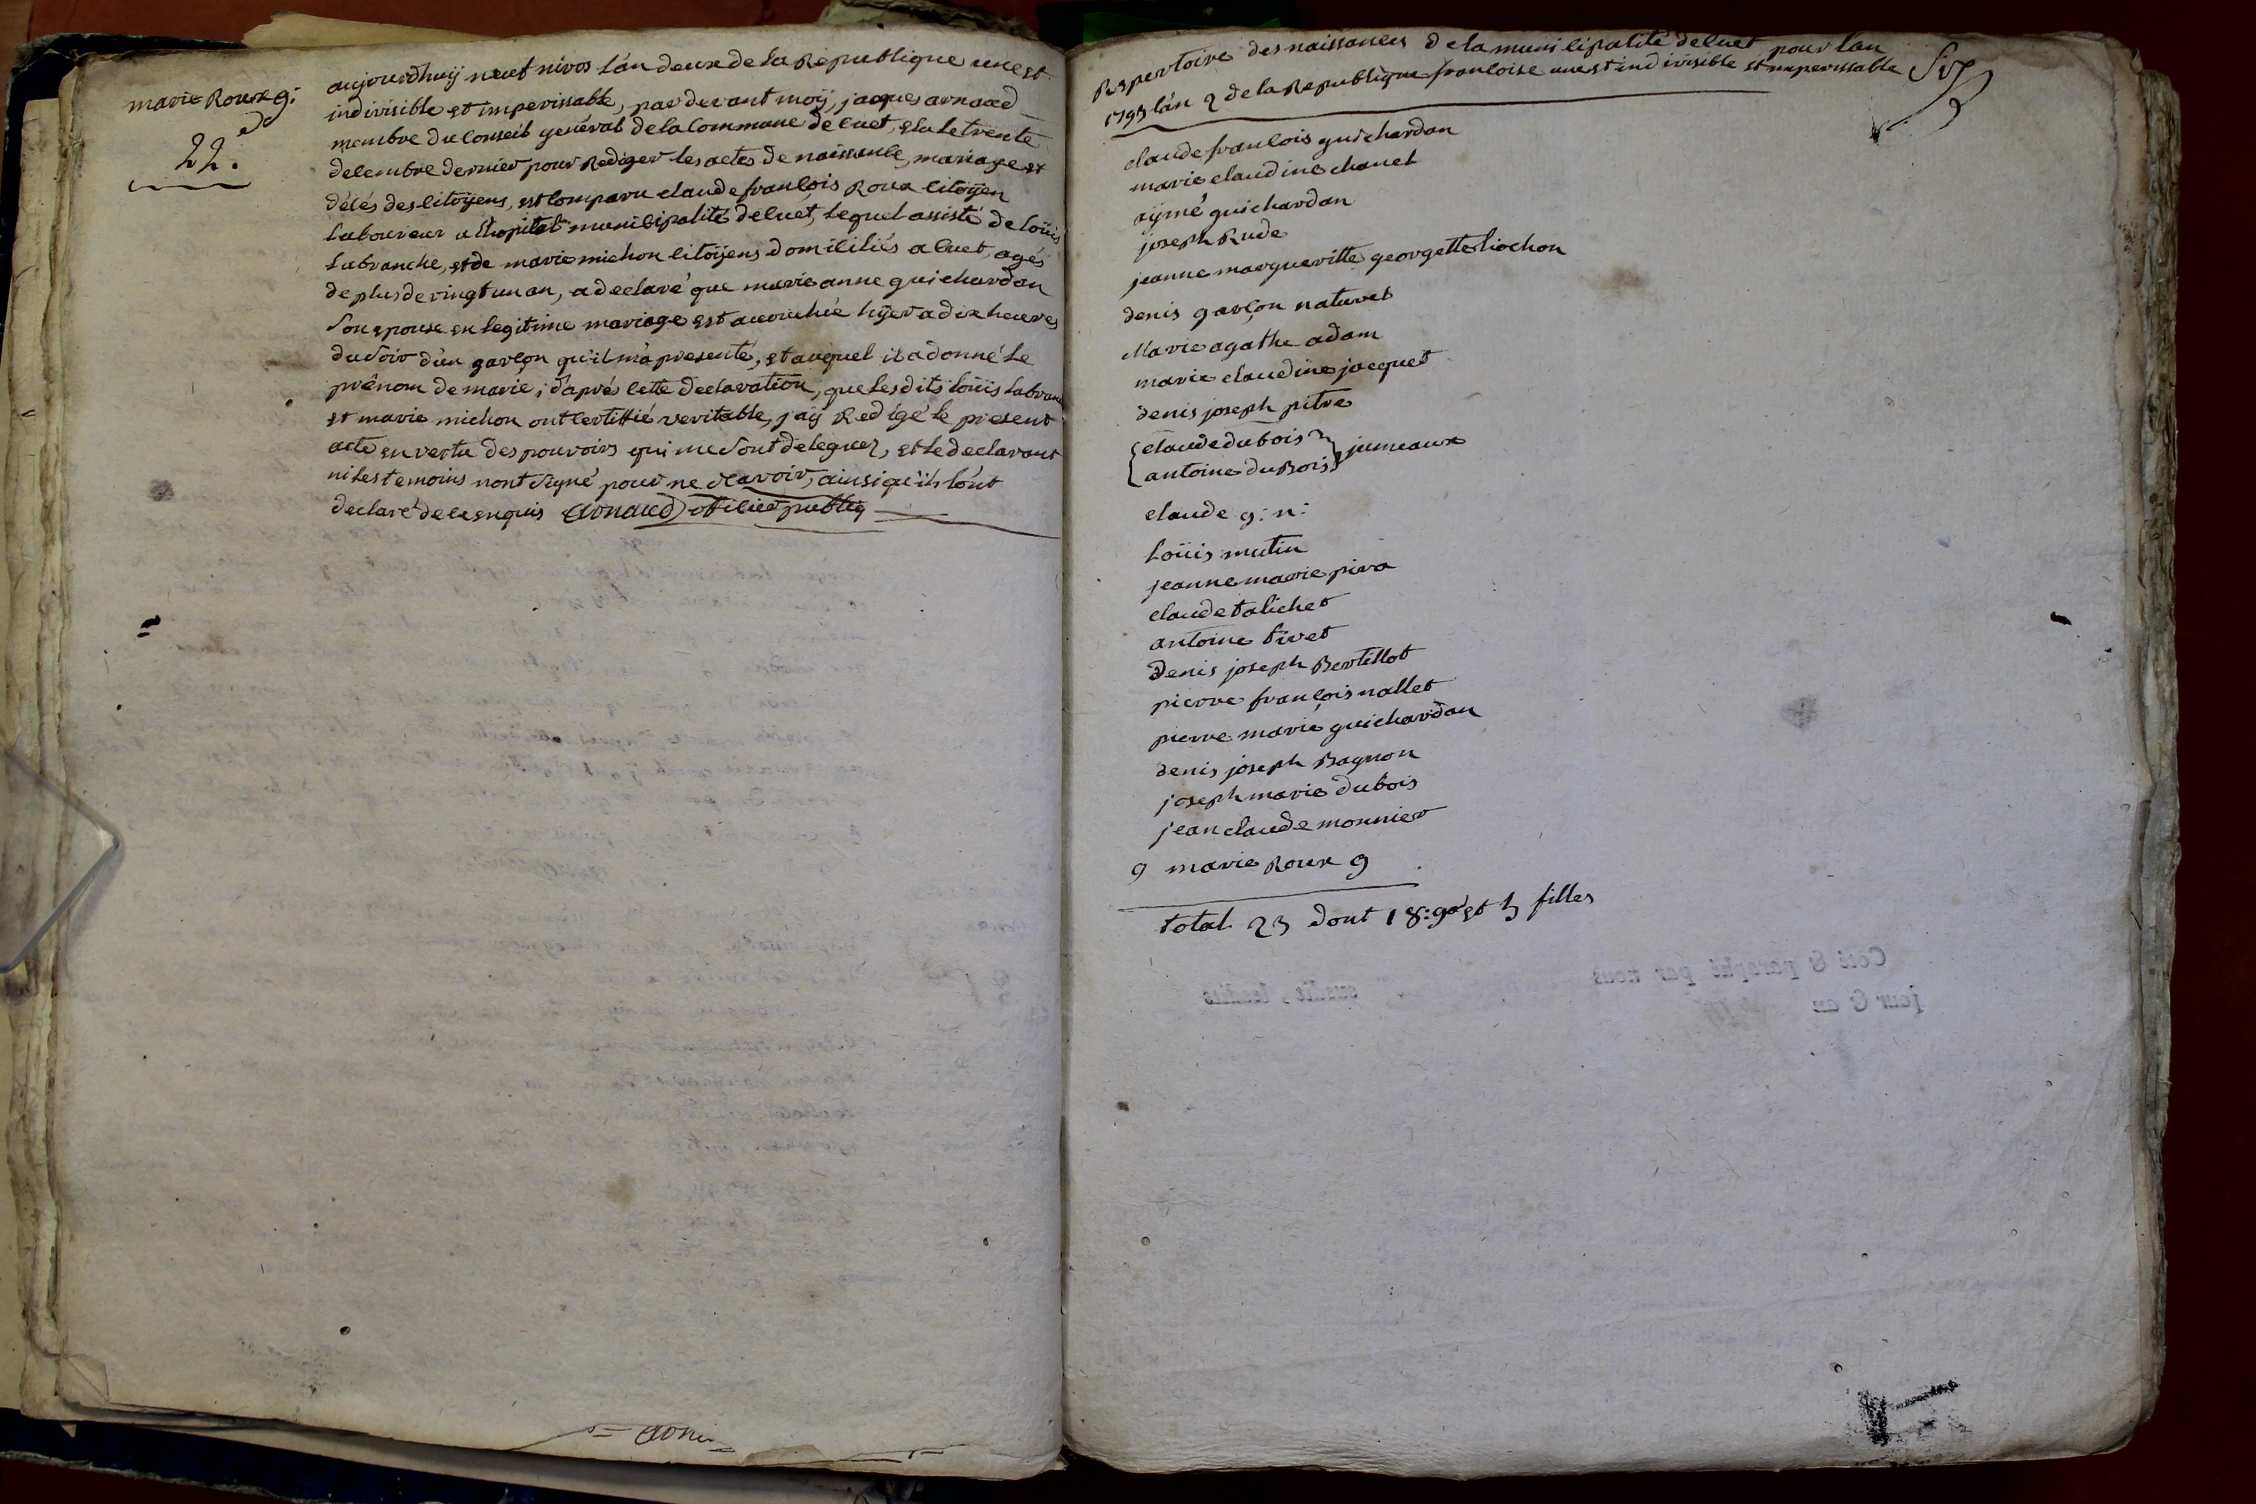 marie Roux g:
22.e
aujourdhuy neuf nivos l'an deux de la Republique une et
indivisible et imperissable, par devant moÿ, jacques arnaud
membre du Conseil genéral de la Commune de Cuet, elu le trente
decembre dernier pour Rediger les actes de naissance, mariage et
décés des Citoÿens, est Comparu claude françois Roux Citoÿen
Laboureur a l'hopital municipalité de Cuet, Lequel assisté de Loüis
Labranche, et de marie michon Citoÿens domiciliés a Cuet, agés
de plus de vingt un an, a declaré que marie anne guichardan
Son epouse en legitime mariage est accouchée hÿer a dix heures
du soir d'un garçon qu'il m'a presenté, et auquel il a donné le
prênom de marie; d'aprés Cette declaration, que lesdits Loüis Labran
et marie michon ont Certiffié veritable, j'aÿ Redigé le present
acte en vertu des pouvoirs qui me Sont deleguez, et le declarant
ni les temoins n'ont Signé pour ne Scavoir, ainsi qu'ils l'ont
declaré de ce enquis Arnaud officier publiq
Repertoire des naissances de la municipalité de Cuet pour l'an
1793 l'an 2 de la Republique francoise une et indivisible et imperissable
claude francois guichardan
marie claudine chanel
aÿmé guichardan
joseph Rude
jeanne margueritte georgette liochon
denis garçon naturel
Marie agathe adam
marie claudine jacquet
denis joseph pitre
claude dubois
antoine duBois } jumeaux
claude g: n:
Loüis mutin
jeanne marie piva
claude talichet
antoine tivet
denis joseph Bertillot
pierre françois nallet
pierre marie guichardan
denis joseph Bagnon
joseph marie dubois
jean claude monnier
g marie Roux g
total 23 dont 18: g.o et 5 filles